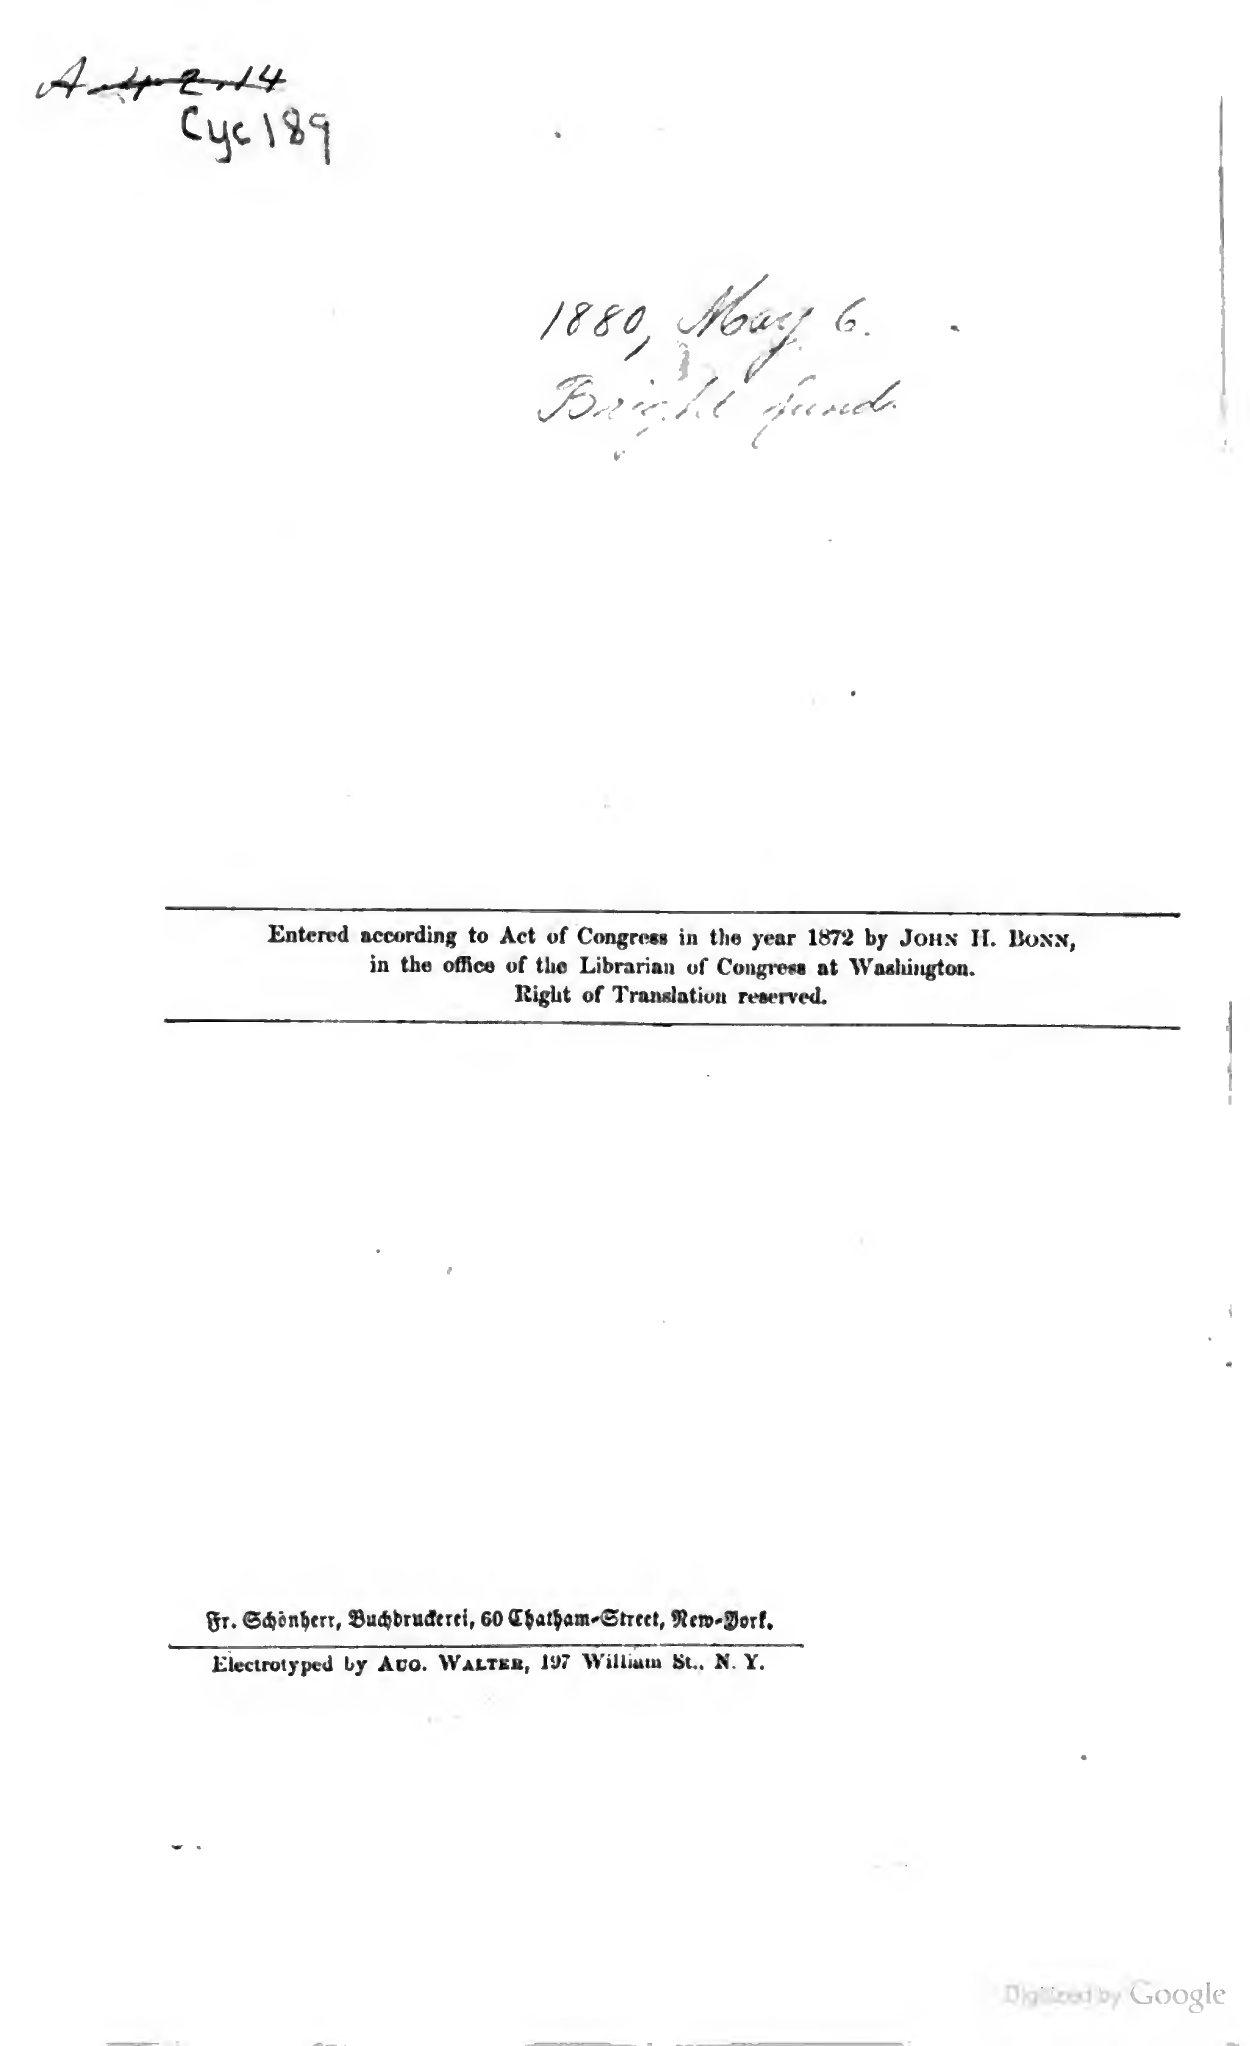 A 4.2.14
Cyc 189
1880, May 6.
Bright fund.
Entered according to Act of Congress in the year 1872 by JOHN H. BONN,
in the office of the Librarian of Congress at Washington.
Right of Translation reserved.
Fr. Schönherr, Buchdruckerei, 60 Chatham-Street, New-York.
Electrotyped by AUG. WALTER, 197 William St., N. Y.
Digitized by Google